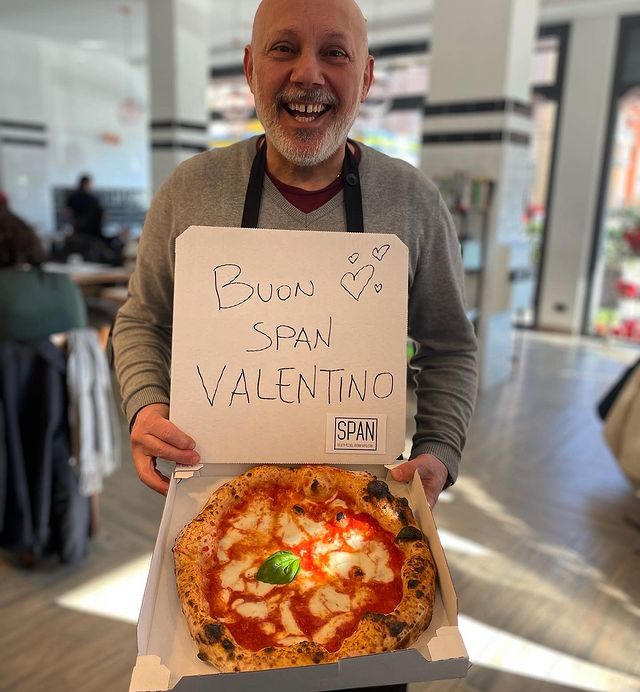 BUON
SPAN
VALENTINO
SPAN